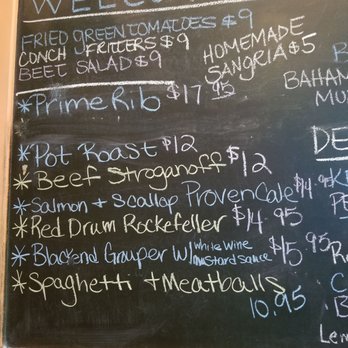 FRIED GREEN TOMATOES $9
CONCH FRITTERS $9
BEET SALAD $9
HOMEMADE
SANGRIA $5
BAHAM
MU
* Prime Rib $17.95
* Pot Roast $12
* Beef Stroganoff $12
* Salmon + Scallop Provencale $14.95
* Red Drum Rockefeller $14.95
* Blackend Grouper W/ white wine mustard sauce $15.95
* Spaghetti + Meatballs
10.95
DE
Lem